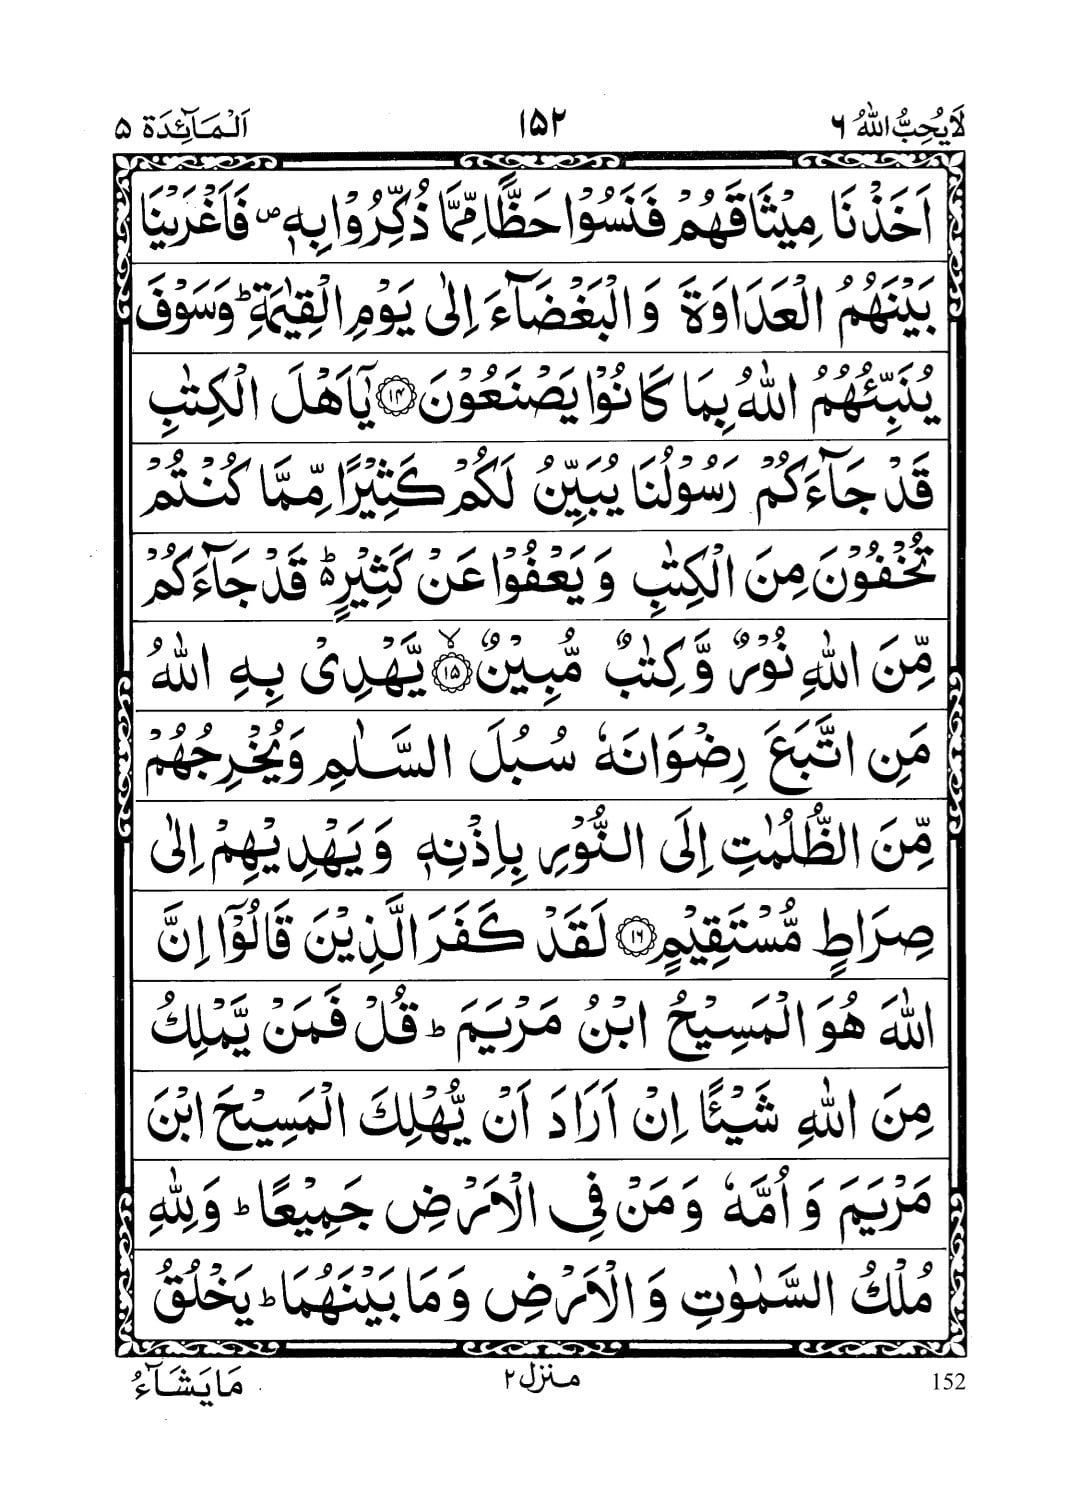 لَا يُحِبُّ اللّٰهُ ٦ ١٥٢ اَلْمَآئِدَة ۵
اَخَذْنَا مِيْثَاقَهُمْ فَنَسُوْا حَظًّا مِّمَّا ذُكِّرُوْا بِهٖ ۪ فَاَغْرَيْنَا
بَيْنَهُمُ الْعَدَاوَةَ وَالْبَغْضَآءَ اِلٰى يَوْمِ الْقِيٰمَةِ ؕ وَسَوْفَ
يُنَبِّئُهُمُ اللّٰهُ بِمَا كَانُوْا يَصْنَعُوْنَ ﴿۱۴﴾ يٰۤاَهْلَ الْكِتٰبِ
قَدْ جَآءَكُمْ رَسُوْلُنَا يُبَيِّنُ لَكُمْ كَثِيْرًا مِّمَّا كُنْتُمْ
تُخْفُوْنَ مِنَ الْكِتٰبِ وَيَعْفُوْا عَنْ كَثِيْرٍ ؕ قَدْ جَآءَكُمْ
مِّنَ اللّٰهِ نُوْرٌ وَّكِتٰبٌ مُّبِيْنٌ ۙ﴿۱۵﴾ يَّهْدِيْ بِهِ اللّٰهُ
مَنِ اتَّبَعَ رِضْوَانَهٗ سُبُلَ السَّلٰمِ وَيُخْرِجُهُمْ
مِّنَ الظُّلُمٰتِ اِلَى النُّوْرِ بِاِذْنِهٖ وَيَهْدِيْهِمْ اِلٰى
صِرَاطٍ مُّسْتَقِيْمٍ ﴿۱۶﴾ لَقَدْ كَفَرَ الَّذِيْنَ قَالُوْۤا اِنَّ
اللّٰهَ هُوَ الْمَسِيْحُ ابْنُ مَرْيَمَ ؕ قُلْ فَمَنْ يَّمْلِكُ
مِنَ اللّٰهِ شَيْـًٔا اِنْ اَرَادَ اَنْ يُّهْلِكَ الْمَسِيْحَ ابْنَ
مَرْيَمَ وَاُمَّهٗ وَمَنْ فِى الْاَرْضِ جَمِيْعًا ؕ وَلِلّٰهِ
مُلْكُ السَّمٰوٰتِ وَالْاَرْضِ وَمَا بَيْنَهُمَا ؕ يَخْلُقُ
152 منزل ۲ مَا يَشَآءُ